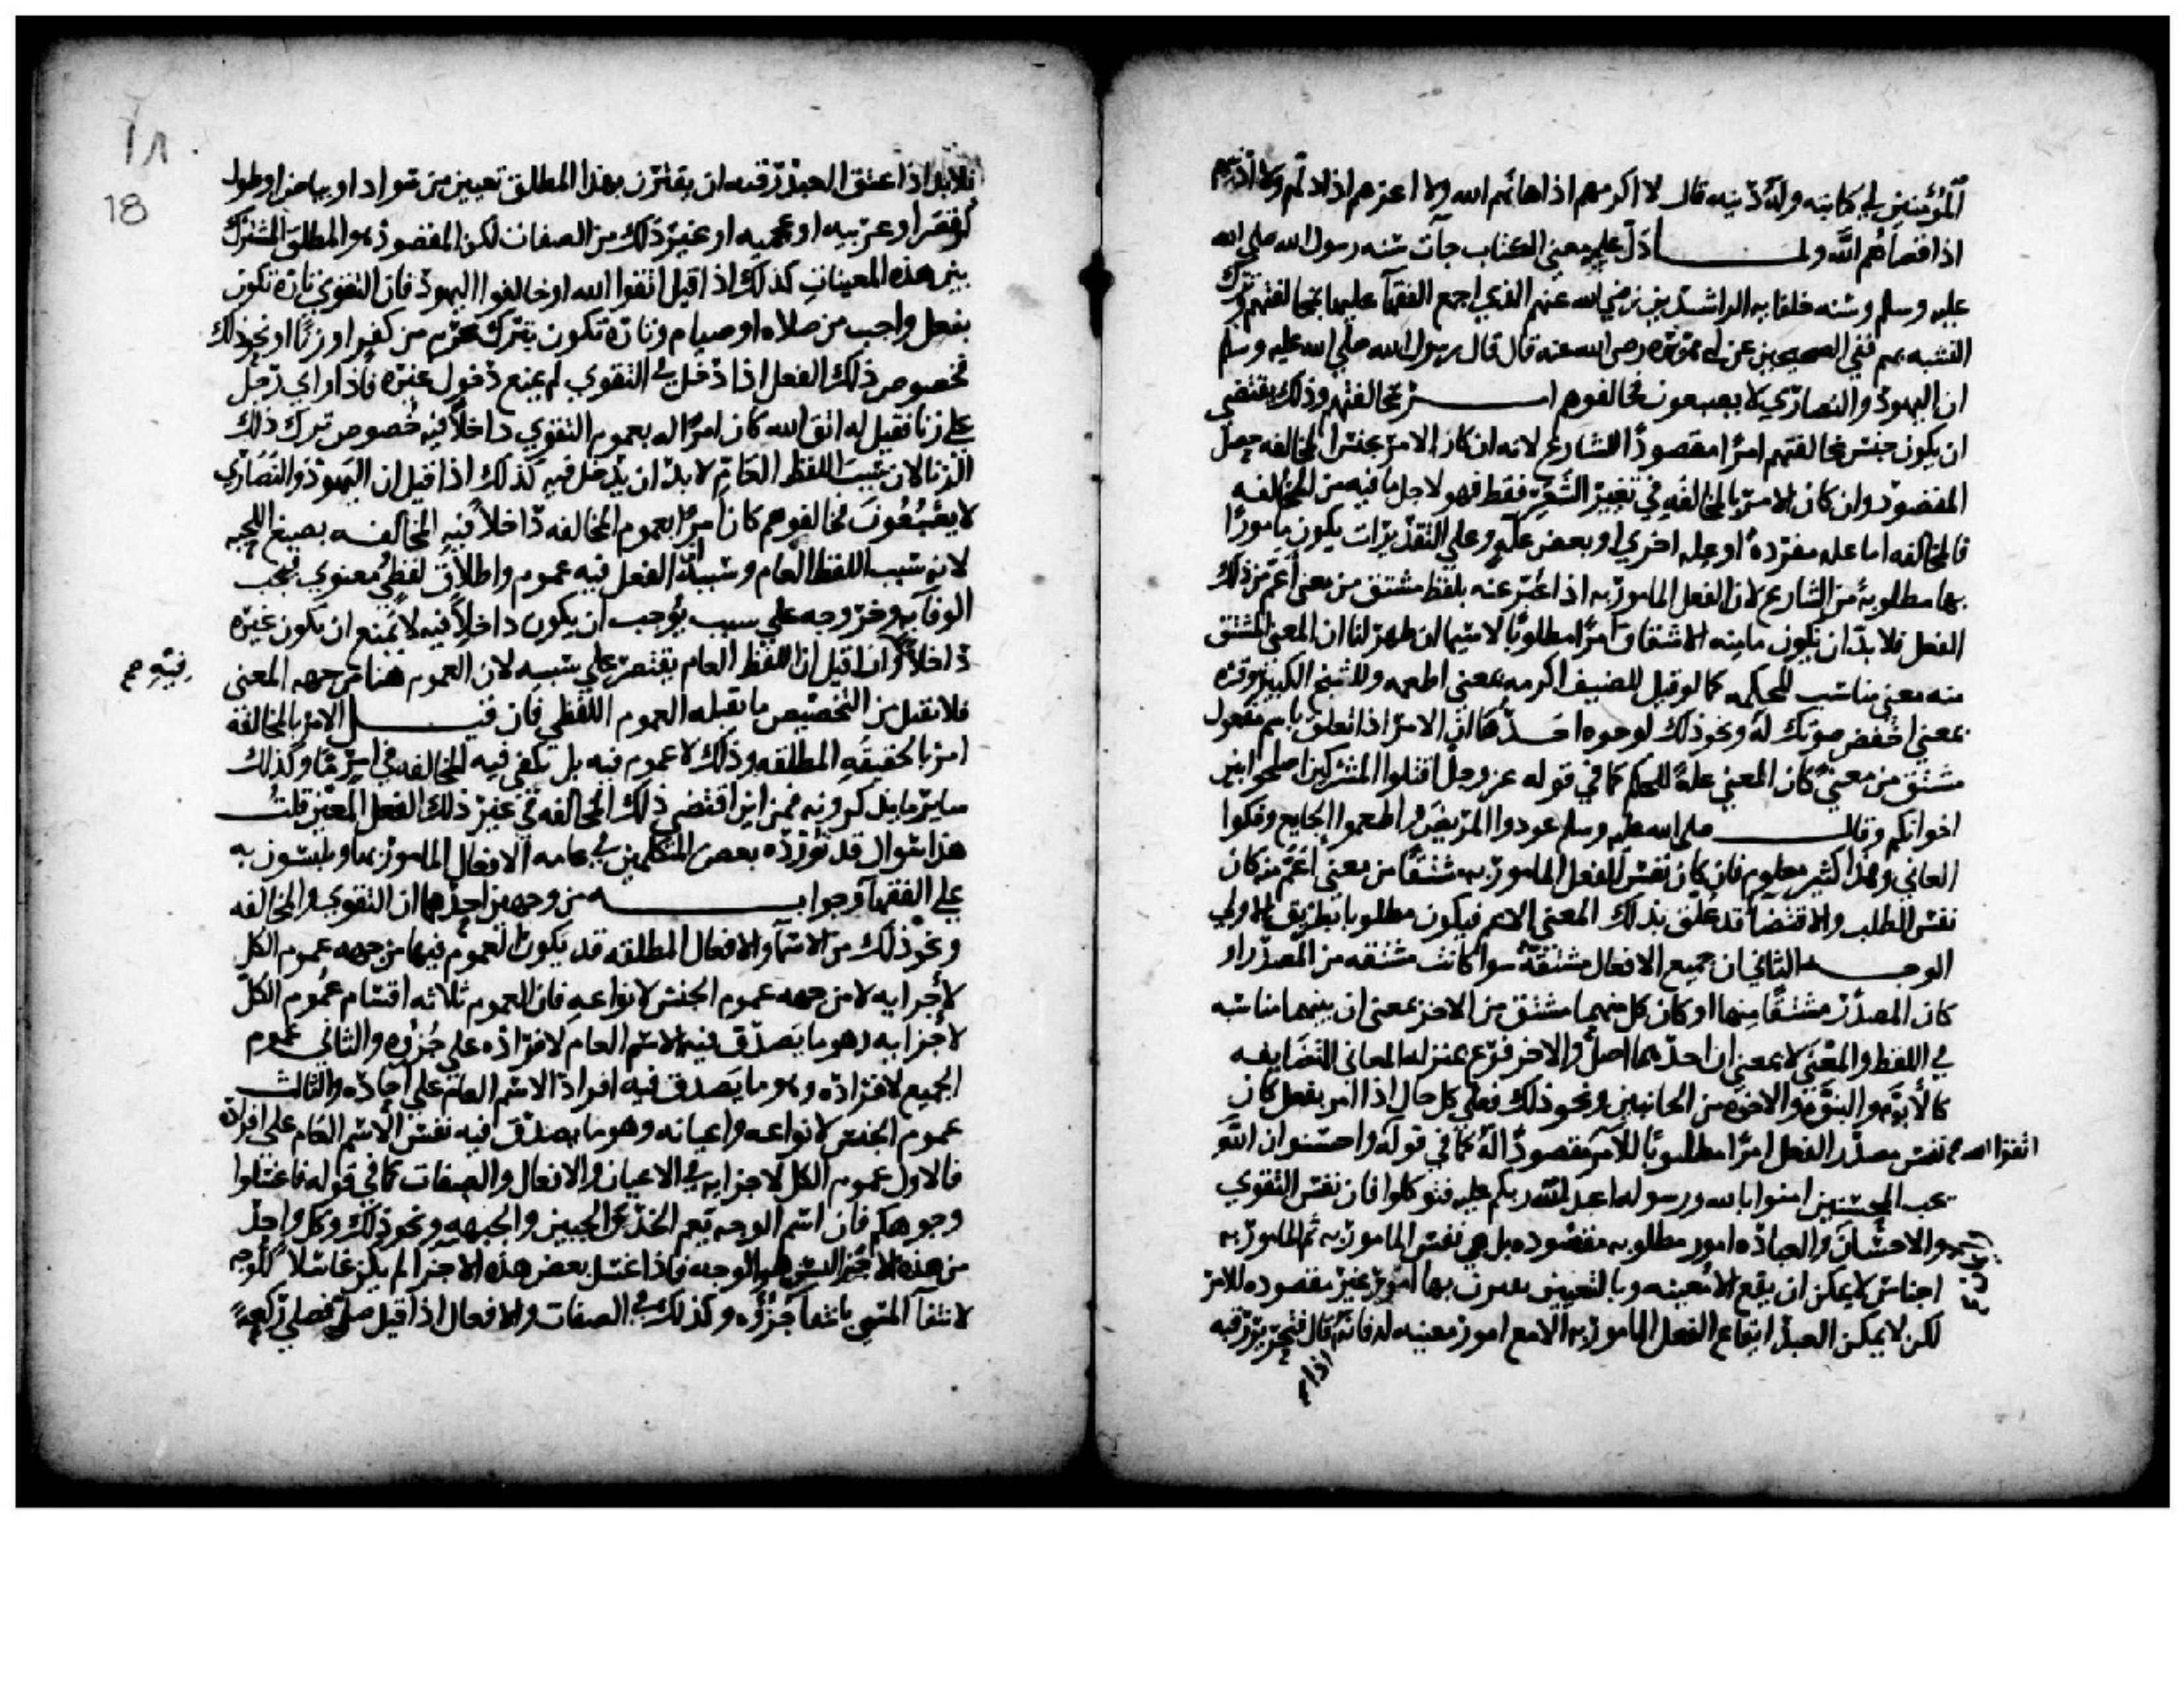 المؤمنين لي كاتبه وله دينه قال لا اكرمهم اذ اهانهم الله ولا اعزهم اذ اذلهم ولا ادنيهم
اذ اقصاهم الله ولما دل عليه معنى الكتاب جات سنه رسول الله صلى الله
عليه وسلم وسنه خلفايه الراشدين رضي الله عنهم الذي اجمع الفقها عليها بمخالفتهم وترك
التشبه بهم ففي الصحيحين عن ابي هريره رضى الله عنه قال قال رسول الله صلي الله عليه وسلم
ان اليهود والنصارى لا يصبغون فخالفوهم امر بمخالفتهم وذلك يقتضي
ان يكون جنس مخالفتهم امرا مقصودا للشارع لانه ان كان الامر بجنس المخالفه حصل
المقصود وان كان الامر بالمخالفه في تغيير الشعر فقط فهو لاجل ما فيه من المخالفه
فالمخالفه اما عله مفرده او عله اخري او بعض عله وعلي التقديرات يكون مامورا
بها مطلوبة من الشارع لان الفعل المامور به اذا عبر عنه بلفظ مشتق من معنى اعم من ذلك
الفعل فلا بد ان يكون ما منه الاشتقاق امرا مطلوبا لا سيما ان ظهر لنا ان المعنى المشتق
منه معنى مناسب للحكمه كما لو قيل للضيف اكرمه بمعنى اطعمه وللشيخ الكبير وقره
بمعنى اخفض صوتك له ونحو ذلك لوجوه احدها ان الامر اذا تعلق باسم مفعول
مشتق من معنى كان المعنى علة للحكم كما في قوله عز وجل اقتلوا المشركين اصلحوا بين
اخوانكم وقال صلى الله عليه وسلم عودوا المريض واطعموا الجايع وفكوا
العاني وهذا كثير معلوم فان كان نفس الفعل المامور به مشتقا من معنى اعم منه كان
نفس الطلب والاقتضا قد علق بذلك المعنى الاعم فيكون مطلوبا بطريق الاولى
الوجه الثاني ان جميع الافعال مشتقة سوا كانت مشتقه من المصدر او
كان المصدر مشتقا منها او كان كل منهما مشتق من الاخر بمعنى ان بينهما مناسبه
في اللفظ والمعنى لا بمعنى ان احدهما اصل والاخر فرع بمنزله المعاني المتضايفه
كالابوة والبنوة والاخوه من الجانبين ونحو ذلك فعلى كل حال اذا امر بفعل كان
نفس مصدر الفعل امرا مطلوبا للامر مقصودا له كما في قوله واحسنوا ان الله
اتقوا الله
يحب المحسنين امنوا بالله ورسوله اعبدوا الله ربكم عليه فتوكلوا فان نفس التقوي
والاحسان والعباده امور مطلوبه مقصوده بل هي نفس المامور به ثم المامور به
اجناس لا يمكن ان يقع الا معينه وبالتعيين يقترن بها امور غير مقصوده للامر
لكن لا يمكن العبد ايقاع الفعل المامور به الا مع امور معينه له فانه قال فتحرير رقبه
اذا
١٨
18
فلا بد اذا اعتق العبد رقبه ان يقترن بهذا المطلق تعيين من سواد او بياض او طول
او قصر او عربيه او عجميه او غير ذلك من الصفات لكن المقصود هو المطلق المشترك
بين هذه المعينات كذلك اذا قيل اتقوا الله او خالفوا اليهود فان التقوى تارة تكون
بفعل واجب من صلاه او صيام وتارة تكون بترك محرم من كفر او زنا او نحو ذلك
فخصوص ذلك الفعل اذا دخل في التقوي لم يمنع دخول غيره فاذا راي رجل
على زنا فقيل له اتق الله كان امرا له بعموم التقوي داخلا فيه خصوص ترك ذلك
الزنا لان سبب اللفظ العام لا بد ان يدخل فيه كذلك اذا قيل ان اليهود والنصارى
لا يصبغون فخالفوهم كان امرا بعموم المخالفه داخلا فيه المخالفه بصبغ اللحيه
لانه سبب اللفظ العام وسببه ان الفعل فيه عموم واطلاق لفظي معنوي فيجب
الوفا به وخروجه على سبب يوجب ان يكون داخلا فيه لا يمنع ان يكون غيره
داخلا وان قيل ان اللفظ العام يقتصر على سببه لان العموم هنا من جهه المعنى
فيه صح
فلا تقبل من التخصيص ما تقبله العموم اللفظي فان قيل الامر بالمخالفة
امر بالحقيقه المطلقه وذلك لا عموم فيه بل تكفي فيه المخالفه في امر ما وكذلك
ساير ما يذكرونه فمن اين اقتضي ذلك المخالفه في غير ذلك الفعل المعين قلت
هذا سوال قد يورده بعض المتكلمين في عامه الافعال المامور بها ويلبسون به
على الفقها وجوابه من وجهين احدهما ان التقوي والمخالفه
ونحو ذلك من الاسما والافعال المطلقه قد يكون العموم فيها من جهه عموم الكل
لاجزايه لا من جهه عموم الجنس لانواعه فان العموم ثلاثه اقسام عموم الكل
لاجزايه وهو ما لا يصدق فيه الاسم العام لافراده على جزوه والثاني عموم
الجميع لافراده وهو ما يصدق فيه افراد الاسم العام على احاده والثالث
عموم الجنس لانواعه واعيانه وهو ما يصدق فيه نفس الاسم العام على افراده
فالاول عموم الكل لاجزايه في الاعيان والافعال والصفات كما في قوله فاغسلوا
وجوهكم فان اسم الوجه يعم الخد والجبين والجبهه ونحو ذلك وكل واحد
من هذه الاجزا ليس هو الوجه فاذا غسل بعض هذه الاجزا لم يكن غاسلا للوجه
لانتفا المسمي بانتفا جزؤه وكذلك في الصفات والافعال اذا قيل صل فصلي ركعة